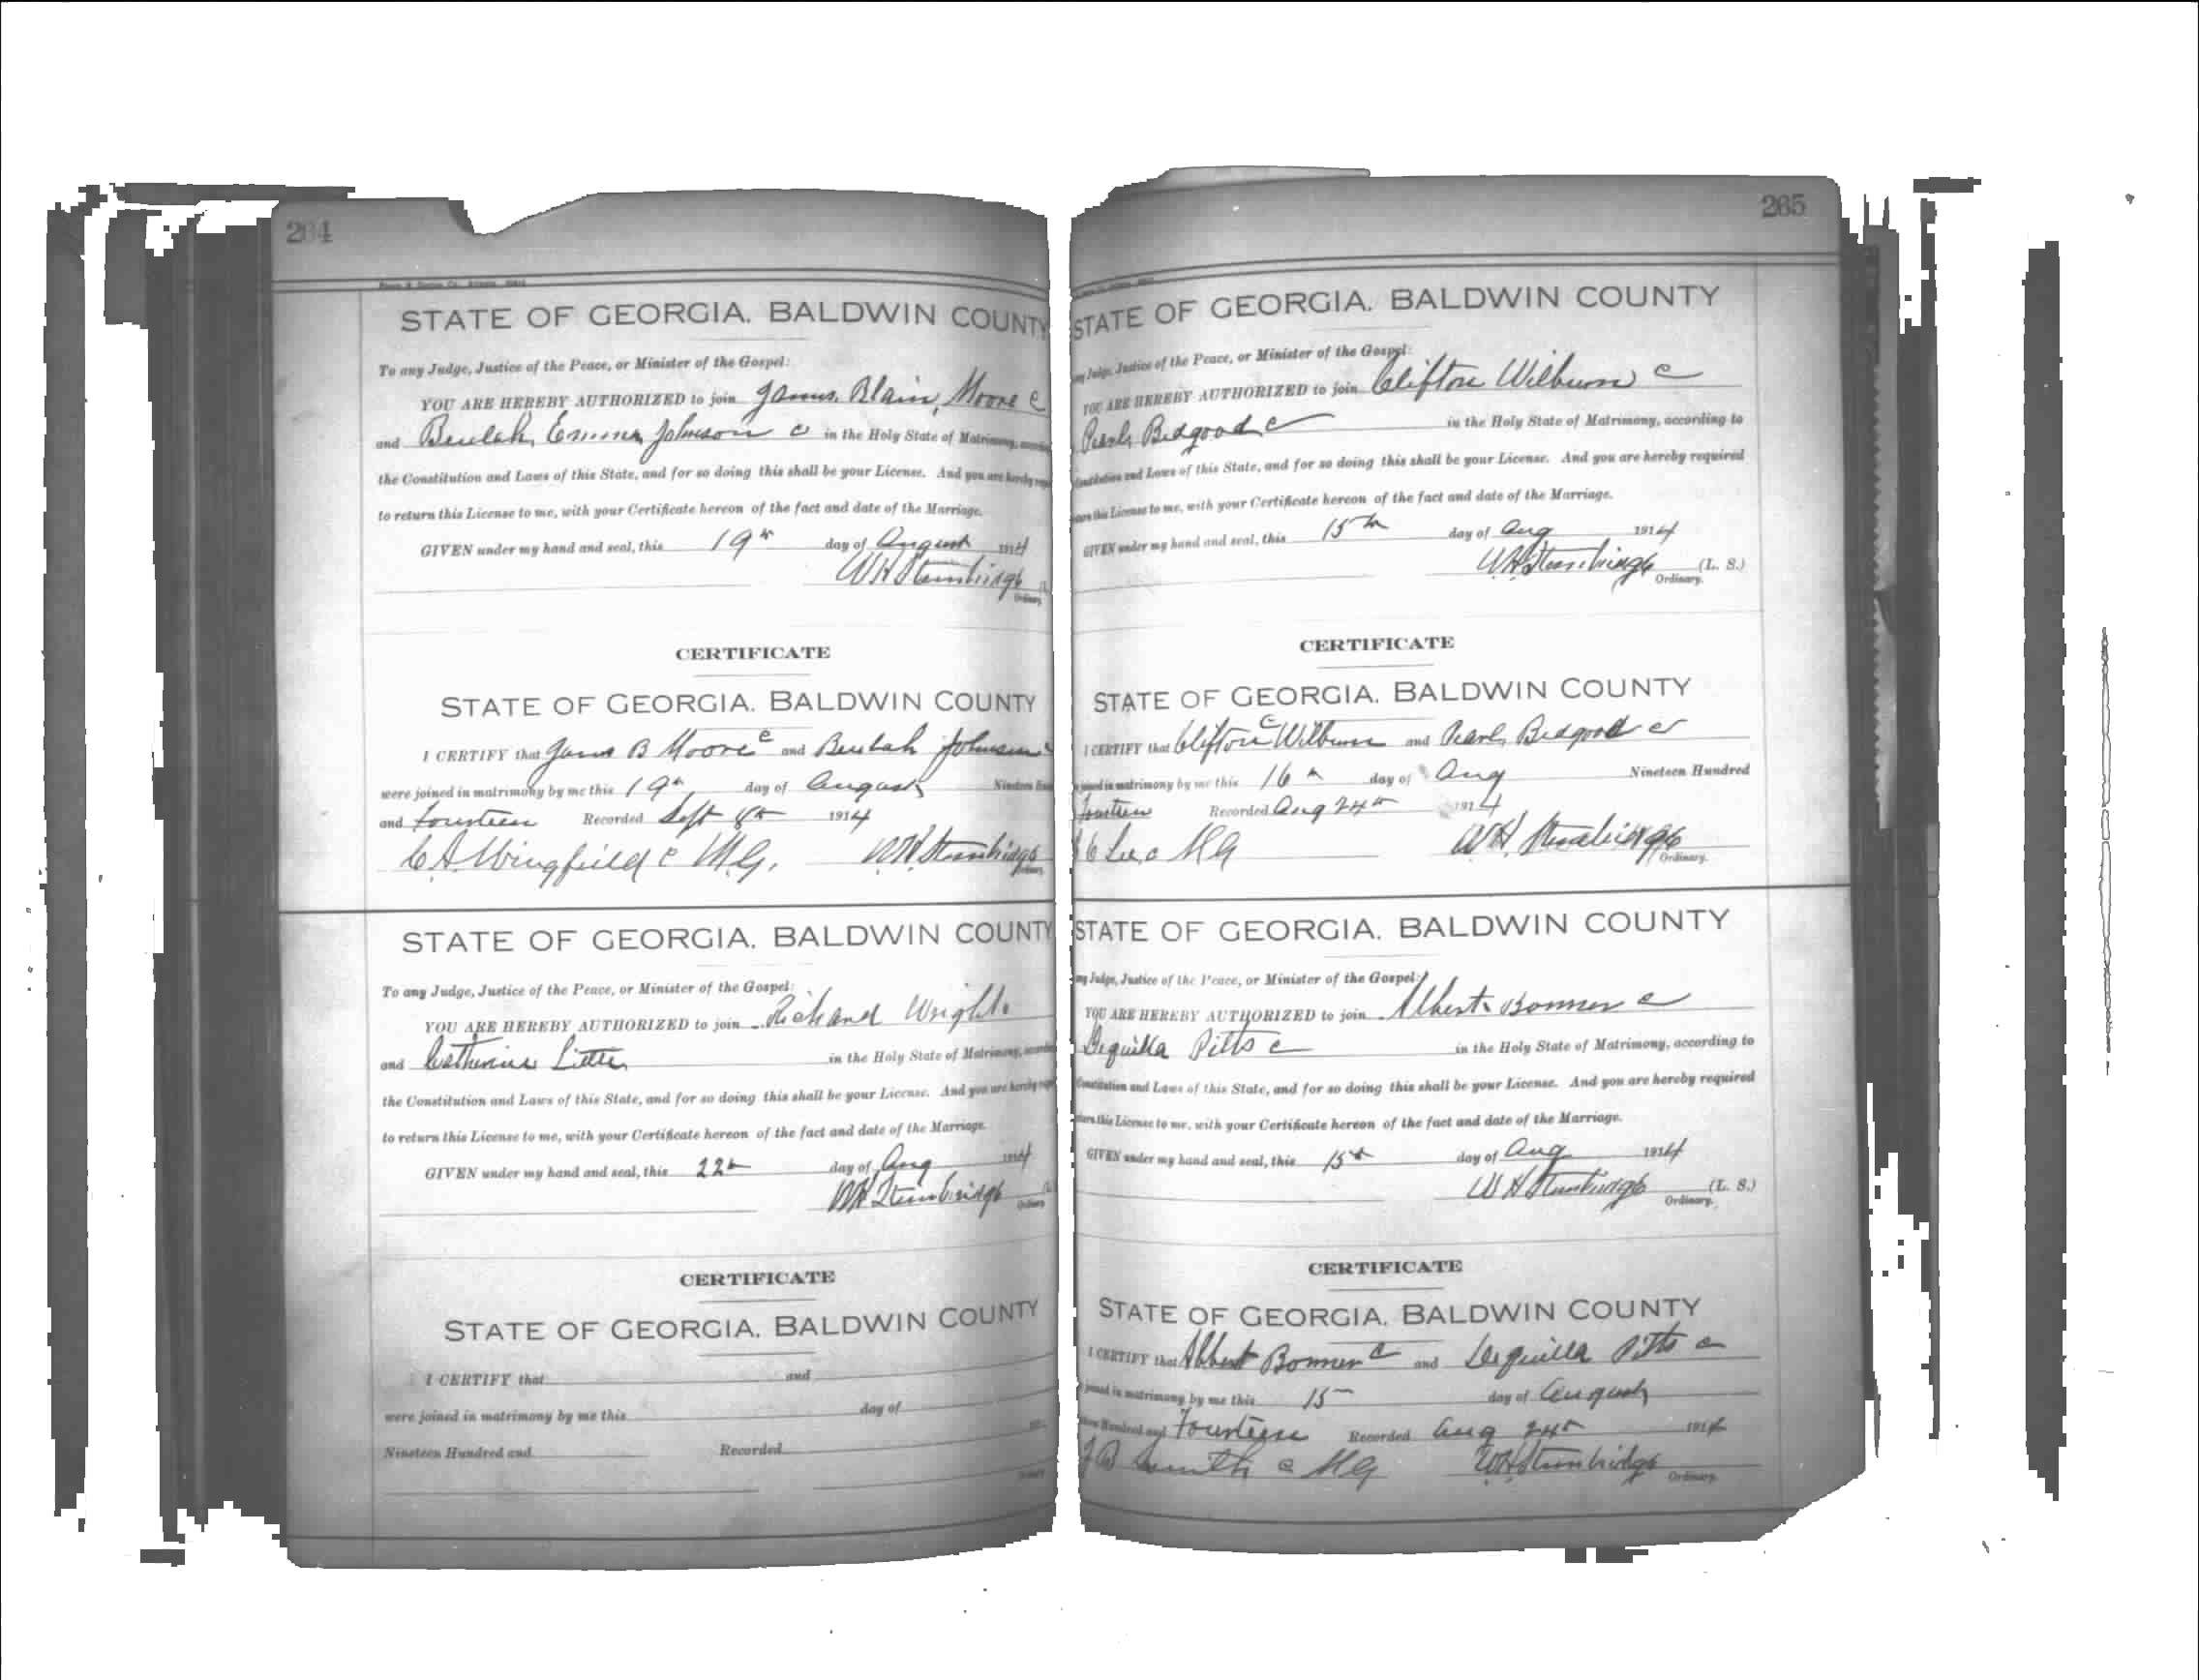 264
STATE OF GEORGIA. BALDWIN COUNTY
To any Judge, Justice of the Peace, or Minister of the Gospel:
YOU ARE HEREBY AUTHORIZED to join James Blain Moore c
and Beulah Emma Johnson c in the Holy State of Matrimony,
the Constitution and Laws of this State, and for so doing this shall be your License. And you are hereby
to return this License to me, with your Certificate hereon of the fact and date of the Marriage.
GIVEN under my hand and seal, this 19th day of August 1914
W H Stembridge
Ordinary.
CERTIFICATE
STATE OF GEORGIA. BALDWIN COUNTY
I CERTIFY that James B Moore c and Beulah Johnson c
were joined in matrimony by me this 19th day of August Nineteen
and fourteen Recorded Sept 8th 1914
C. A. Wingfield c M.G. W.H. Stembridge
Ordinary.
STATE OF GEORGIA. BALDWIN COUNTY
To any Judge, Justice of the Peace, or Minister of the Gospel:
YOU ARE HEREBY AUTHORIZED to join Richard Wright
and Catherine in the Holy State of Matrimony,
the Constitution and Laws of this State, and for so doing this shall be your License. And you are hereby
to return this License to me, with your Certificate hereon of the fact and date of the Marriage.
GIVEN under my hand and seal, this 22 day of Aug 1914
W H Stembridge
Ordinary
CERTIFICATE
STATE OF GEORGIA. BALDWIN COUNTY
I CERTIFY that and
were joined in matrimony by me this day of
Nineteen Hundred and Recorded
265
STATE OF GEORGIA. BALDWIN COUNTY
Judge, Justice of the Peace, or Minister of the Gospel:
YOU ARE HEREBY AUTHORIZED to join Clifton Wilburn c
Pearl Bedgood c in the Holy State of Matrimony, according to
Constitution and Laws of this State, and for so doing this shall be your License. And you are hereby required
this License to me, with your Certificate hereon of the fact and date of the Marriage.
GIVEN under my hand and seal, this 15th day of Aug 1914
W H Stembridge (L. S.)
Ordinary.
CERTIFICATE
STATE OF GEORGIA. BALDWIN COUNTY
I CERTIFY that Clifton c Wilburn and Pearl Bedgood c
joined in matrimony by me this 16th day of Aug Nineteen Hundred
fourteen Recorded Aug 24th 1914
Lee c M G W H Stembridge
Ordinary.
STATE OF GEORGIA. BALDWIN COUNTY
Judge, Justice of the Peace, or Minister of the Gospel:
YOU ARE HEREBY AUTHORIZED to join Albert Bonner c
Pitts c in the Holy State of Matrimony, according to
Constitution and Laws of this State, and for so doing this shall be your License. And you are hereby required
this License to me, with your Certificate hereon of the fact and date of the Marriage.
GIVEN under my hand and seal, this 15th day of Aug 1914
W H Stembridge (L. S.)
Ordinary.
CERTIFICATE
STATE OF GEORGIA. BALDWIN COUNTY
I CERTIFY that Albert Bonner c and Pitts c
joined in matrimony by me this 15 day of August
Hundred and Fourteen Recorded Aug 24th 1914
J B Smith c M G W H Stembridge
Ordinary.